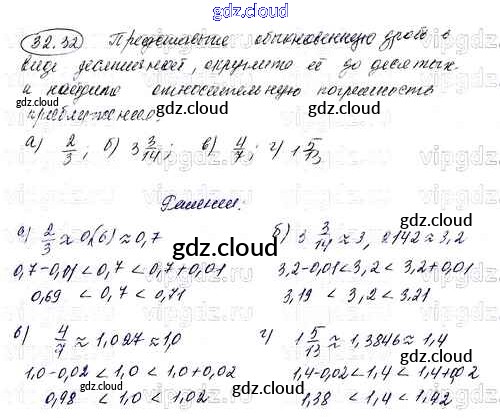 gdz.cloud
32.32 Представьте обыкновенную дробь в
виде десятичной, округлите её до десятых
и найдите относительную погрешность
приближения:
а) 2/3; б) 3 3/14; в) 4/7; г) 1 5/13
Решение.
gdz.cloud
а) 2/3 ≈ 0,(6) ≈ 0,7 б) 3 3/14 ≈ 3,2142 ≈ 3,2
0,7-0,01 < 0,7 < 0,7+0,01 3,2-0,01 < 3,2 < 3,2+0,01
0,69 < 0,7 < 0,71 3,19 < 3,2 < 3,21
в) 4/7 ≈ 1,027 ≈ 1,0 г) 1 5/13 ≈ 1,3846 ≈ 1,4
1,0-0,02 < 1,0 < 1,0+0,02 1,4-0,02 < 1,4 < 1,4+0,02
0,98 < 1,0 < 1,02 1,38 < 1,4 < 1,42
gdz.cloud